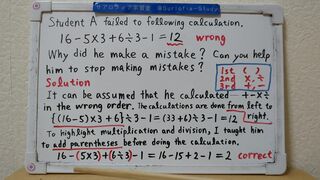 Student A failed to following calculation.
16-5×3+6÷3-1=12 wrong
Why did he make a mistake? Can you help
him to stop making mistakes?
1st ( )
2nd ×, ÷
3rd +, -
Solution
It can be assumed that he calculated +-×÷
in the wrong order. The calculations are done from left to
right.
{(16-5)×3+6}÷3-1=(33+6)÷3-1=12
To highlight multiplication and division, I taught him
to add parentheses before doing the calculation.
16-(5×3)+(6÷3)-1=16-15+2-1=2 correct